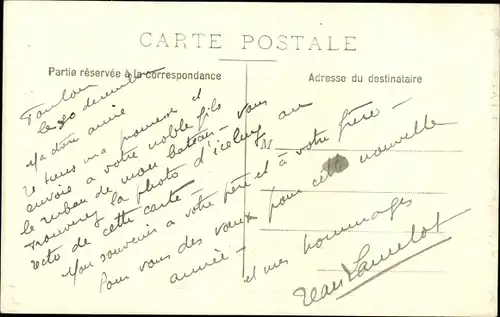 CARTE POSTALE
Partie réservée à la correspondance
Adresse du destinataire
Toulon
le 30 décembre
Ma chère amie
Je tiens ma promesse et
envoie à votre noble fils
le ruban de mon bateau - vous
trouverez la photo d'icelui au
recto de cette carte -
Mon souvenir à votre père et à votre frère -
Pour vous des vœux pour cette nouvelle
année -
et mes hommages
Jean Lancelot